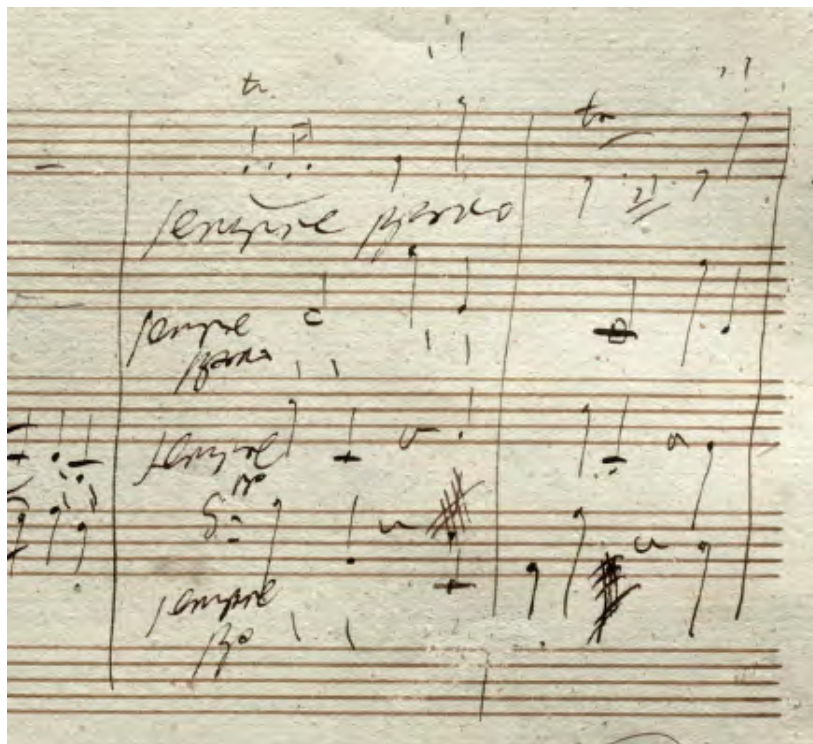 tr
tr
sempre piano
sempre
piano
sempre
sempre
po